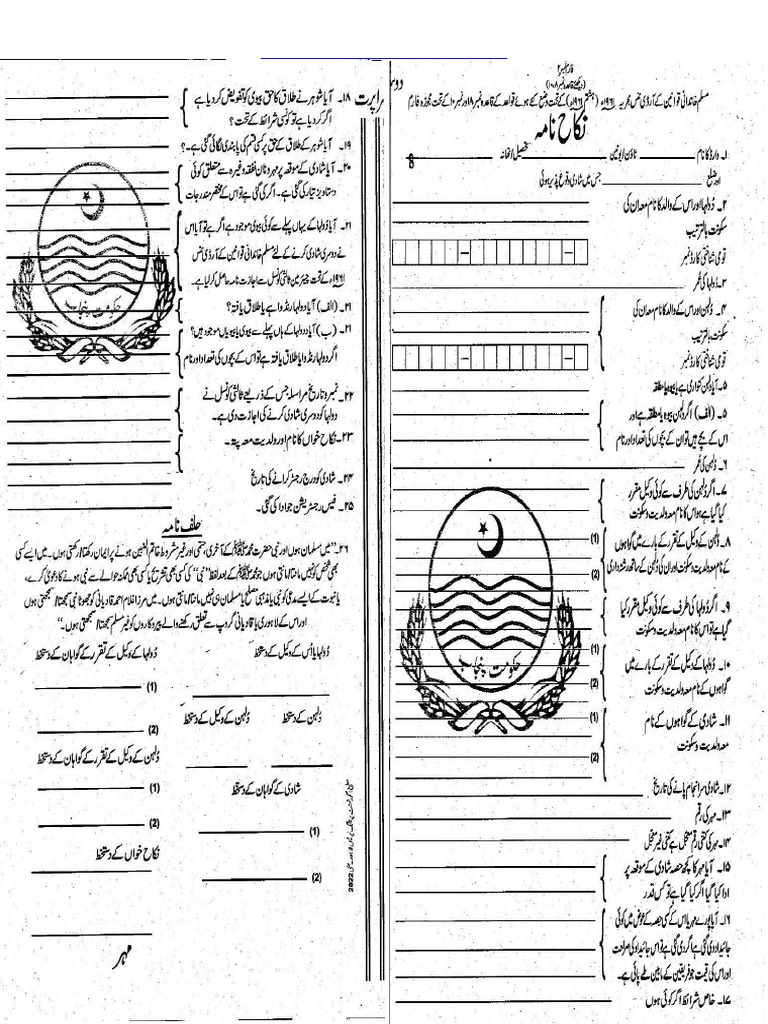 فارم نمبر ۲
(دیکھئے قاعدہ نمبر ۸، ۱۰)
مسلم خاندانی قوانین کے آرڈی ننس مجریہ ۱۹۶۱ء (ہشتم ۱۹۶۱ء) کے تحت وضع کئے ہوئے قواعد کے قاعدہ نمبر ۸ اور نمبر ۱۰ کے تحت مجوزہ فارم
نکاح نامہ
۱۔ وارڈ کا نام ٹاؤن / یونین تحصیل / تھانہ
اور ضلع جس میں شادی وقوع پذیر ہوئی
۲۔ دُولہا اور اس کے والد کا نام معہ ان کی
سکونت بالترتیب
قومی شناختی کارڈ نمبر
۳۔ دُولہا کی عمر
۴۔ دُلہن اور اس کے والد کا نام معہ ان کی
سکونت بالترتیب
قومی شناختی کارڈ نمبر
۵۔ آیا دُلہن کنواری ہے یا بیوہ یا مطلقہ
۵۔ (الف) اگر دُلہن بیوہ یا مطلقہ ہے اور
اس کے بچے ہیں تو ان کے بچوں کی تعداد اور نام
۶۔ دُلہن کی عمر
۷۔ اگر دُلہن کی طرف سے کوئی وکیل مقرر
کیا گیا ہے تو اس کا نام معہ ولدیت و سکونت
۸۔ دُلہن کے وکیل کے تقرر کے بارے میں گواہوں (1)
کے نام معہ ولدیت و سکونت اور ان کی دُلہن کے ساتھ رشتہ داری (2)
۹۔ اگر دُولہا کی طرف سے کوئی وکیل مقرر کیا
گیا ہے تو اس کا نام معہ ولدیت و سکونت
۱۰۔ دُولہا کے وکیل کے تقرر کے بارے میں (1)
گواہوں کے نام معہ ولدیت و سکونت (2)
۱۱۔ شادی کے گواہوں کے نام (1)
معہ ولدیت و سکونت (2)
حکومت پنجاب
۱۲۔ شادی سرانجام پانے کی تاریخ
۱۳۔ مہر کی رقم
۱۴۔ مہر کی کتنی رقم معجل ہے کتنی غیر معجل
۱۵۔ آیا مہر کا کچھ حصہ شادی کے موقعہ پر
ادا کیا گیا اگر کیا گیا ہے تو کس قدر
۱۶۔ آیا پورے مہر یا اس کے کسی حصہ کے عوض میں کوئی
جائیداد دی گئی ہے اگر دی گئی ہے تو اس جائیداد کی صراحت
اور اس کی قیمت جو فریقین کے مابین طے پائی ہے۔
۱۷۔ خاص شرائط اگر کوئی ہوں
۱۸۔ آیا شوہر نے طلاق کا حق بیوی کو تفویض کر دیا ہے
اگر کر دیا ہے تو کونسی شرائط کے تحت؟
۱۹۔ آیا شوہر کے طلاق کے حق پر کسی قسم کی پابندی لگائی گئی ہے۔؟
۲۰۔ آیا شادی کے موقعہ پر مہر و نان و نفقہ وغیرہ سے متعلق کوئی
دستاویز تیار کی گئی ہے۔ اگر کی گئی ہے تو اس کے مختصر مندرجات
۲۱۔ آیا دولہا کے یہاں پہلے سے کوئی بیوی موجود ہے اگر ہے تو آیا اس
نے دوسری شادی کرنے کے لئے مسلم خاندانی قوانین کے آرڈی ننس
۱۹۶۱ء کے تحت چیئرمین ثالثی کونسل سے اجازت نامہ حاصل کر لیا ہے۔
۲۱۔ (الف) آیا دولہا رنڈوا ہے یا طلاق یافتہ؟
۲۱۔ (ب) آیا دولہا کے ہاں پہلے سے بیوی یا بیویاں موجود ہیں؟
اگر دولہا رنڈوا یا طلاق یافتہ ہے تو اس کے بچوں کی تعداد اور نام
حکومت پنجاب
۲۲۔ نمبر و تاریخ مراسلہ جس کے ذریعے ثالثی کونسل نے
دولہا کو دوسری شادی کرنے کی اجازت دی ہے۔
۲۳۔ نکاح خواں کا نام اور ولدیت معہ پتہ۔
۲۴۔ شادی کو درج رجسٹر کرانے کی تاریخ
۲۵۔ فیس رجسٹریشن جو ادا کی گئی۔
حلف نامہ
۲۶۔ "میں مسلمان ہوں اور نبی حضرت محمدﷺ کے آخری، حتمی اور غیر مشروط خاتم النبیین ہونے پر ایمان رکھتا / رکھتی ہوں۔ میں ایسے کسی
بھی شخص کو نہیں مانتا / مانتی ہوں جو محمدﷺ کے بعد لفظ "نبی" کی کسی بھی تشریح یا کسی بھی ممکنہ حوالے سے نبی ہونے کا دعویٰ کرے،
یا نبوت کے ایسے مدعی کو نبی یا مذہبی مصلح یا مسلمان نہیں مانتا / مانتی ہوں۔ میں مرزا غلام احمد قادیانی کو جھوٹا نبی سمجھتا / سمجھتی ہوں
اور اس کے لاہوری یا قادیانی گروپ سے تعلق رکھنے والے پیروکاروں کو غیر مسلم سمجھتا / سمجھتی ہوں۔"
دُولہا یا اُس کے وکیل کے دستخط
دُولہا کے وکیل کے تقرر کے گواہان کے دستخط
(1)
(2)
دُلہن کے دستخط دُلہن کے وکیل کے دستخط
دُلہن کے وکیل کے تقرر کے گواہان کے دستخط
(1)
(2)
شادی کے گواہان کے دستخط
(1)
(2)
نکاح خواں کے دستخط
مہر